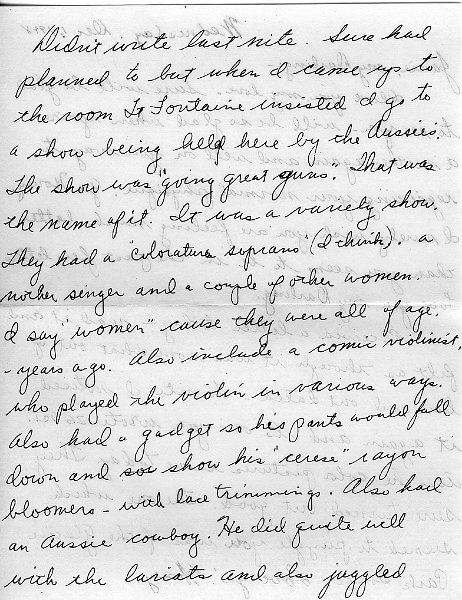 Didn't write last nite. Sure had
planned to but when I came up to
the room La Fontaine insisted I go to
a show being held here by the Aussies.
The show was "going great guns". That was
the name of it. It was a variety show.
They had a "coloratura soprano" (I think). a
nother singer and a couple of other women.
I say "women" cause they were all of age.
- years ago. Also include a comic violinist,
who played the violin in various ways.
Also had a gadget so his pants would fall
down and show his "cerese" rayon
bloomers - with lace trimmings. Also had
an Aussie cowboy. He did quite well
with the lariats and also juggled